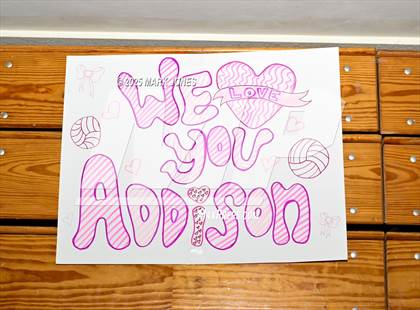 © 2025 MARK JONES
WE LOVE
YOU
ADDISON